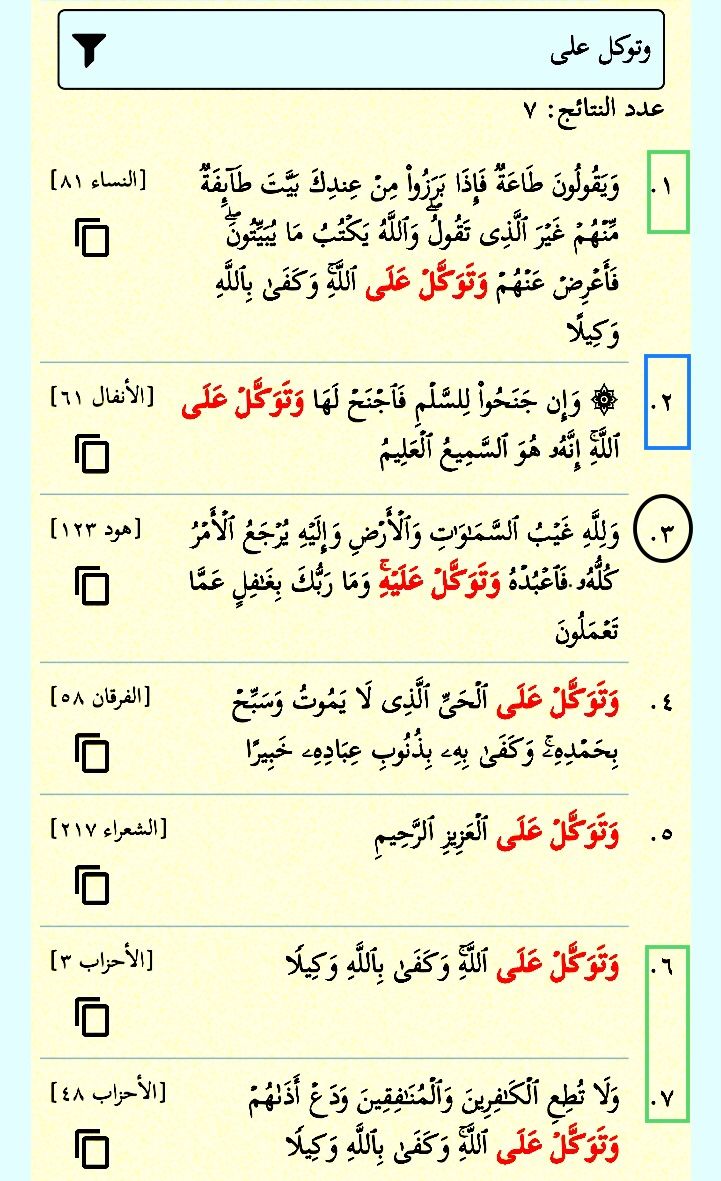 وتوكل على
عدد النتائج: ٧
١. وَيَقُولُونَ طَاعَةٌ فَإِذَا بَرَزُوا۟ مِنْ عِندِكَ بَيَّتَ طَآئِفَةٌ [النساء ٨١]
مِّنْهُمْ غَيْرَ ٱلَّذِى تَقُولُ ۖ وَٱللَّهُ يَكْتُبُ مَا يُبَيِّتُونَ ۖ
فَأَعْرِضْ عَنْهُمْ وَتَوَكَّلْ عَلَى ٱللَّهِ ۚ وَكَفَىٰ بِٱللَّهِ
وَكِيلًا
٢. ۞ وَإِن جَنَحُوا۟ لِلسَّلْمِ فَٱجْنَحْ لَهَا وَتَوَكَّلْ عَلَى [الأنفال ٦١]
ٱللَّهِ ۚ إِنَّهُۥ هُوَ ٱلسَّمِيعُ ٱلْعَلِيمُ
٣. وَلِلَّهِ غَيْبُ ٱلسَّمَـٰوَٰتِ وَٱلْأَرْضِ وَإِلَيْهِ يُرْجَعُ ٱلْأَمْرُ [هود ١٢٣]
كُلُّهُۥ فَٱعْبُدْهُ وَتَوَكَّلْ عَلَيْهِ ۚ وَمَا رَبُّكَ بِغَـٰفِلٍ عَمَّا
تَعْمَلُونَ
٤. وَتَوَكَّلْ عَلَى ٱلْحَىِّ ٱلَّذِى لَا يَمُوتُ وَسَبِّحْ [الفرقان ٥٨]
بِحَمْدِهِۦ ۚ وَكَفَىٰ بِهِۦ بِذُنُوبِ عِبَادِهِۦ خَبِيرًا
٥. وَتَوَكَّلْ عَلَى ٱلْعَزِيزِ ٱلرَّحِيمِ [الشعراء ٢١٧]
٦. وَتَوَكَّلْ عَلَى ٱللَّهِ ۚ وَكَفَىٰ بِٱللَّهِ وَكِيلًا [الأحزاب ٣]
٧. وَلَا تُطِعِ ٱلْكَـٰفِرِينَ وَٱلْمُنَـٰفِقِينَ وَدَعْ أَذَىٰهُمْ [الأحزاب ٤٨]
وَتَوَكَّلْ عَلَى ٱللَّهِ ۚ وَكَفَىٰ بِٱللَّهِ وَكِيلًا